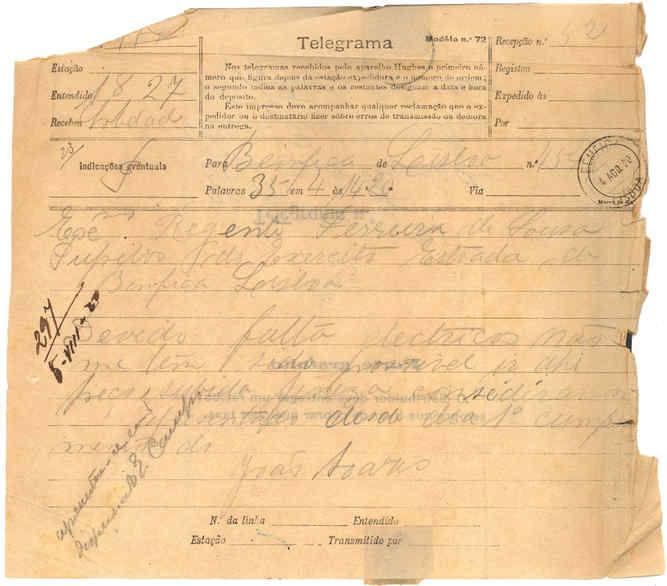 Telegrama
Modêlo n.º 72
Nos telegramas recebidos pelo aparelho Hughes o primeiro nú-
mero que figura depois da estação expedidora é o número de ordem;
o segundo indica as palavras e os restantes designam a data e hora
do depósito.
Este impresso deve acompanhar qualquer reclamação que o ex-
pedidor ou o destinatário fizer sobre erros de transmissão ou demora
na entrega.
Estação
Entendido 18,27
Recebem
Recepção n.º 52
Registou
Expedido às
Por
Indicações eventuais
Para Bemfica de Lisboa n.º
Palavras 35 em 4 às 14,20 Via
4 AGO. 20
Exmo Regente Ferreira de Sousa
Pupilos do Exercito Estrada de
Bemfica Lisboa
297
5-VIII-20
Devido falta electricos não
me tem sido possivel ir ahi
peço subida fineza considerar-me
desde dia 1º cumpri-
mentos
João Soares
N.º da linha Entendido
Estação Transmitido por